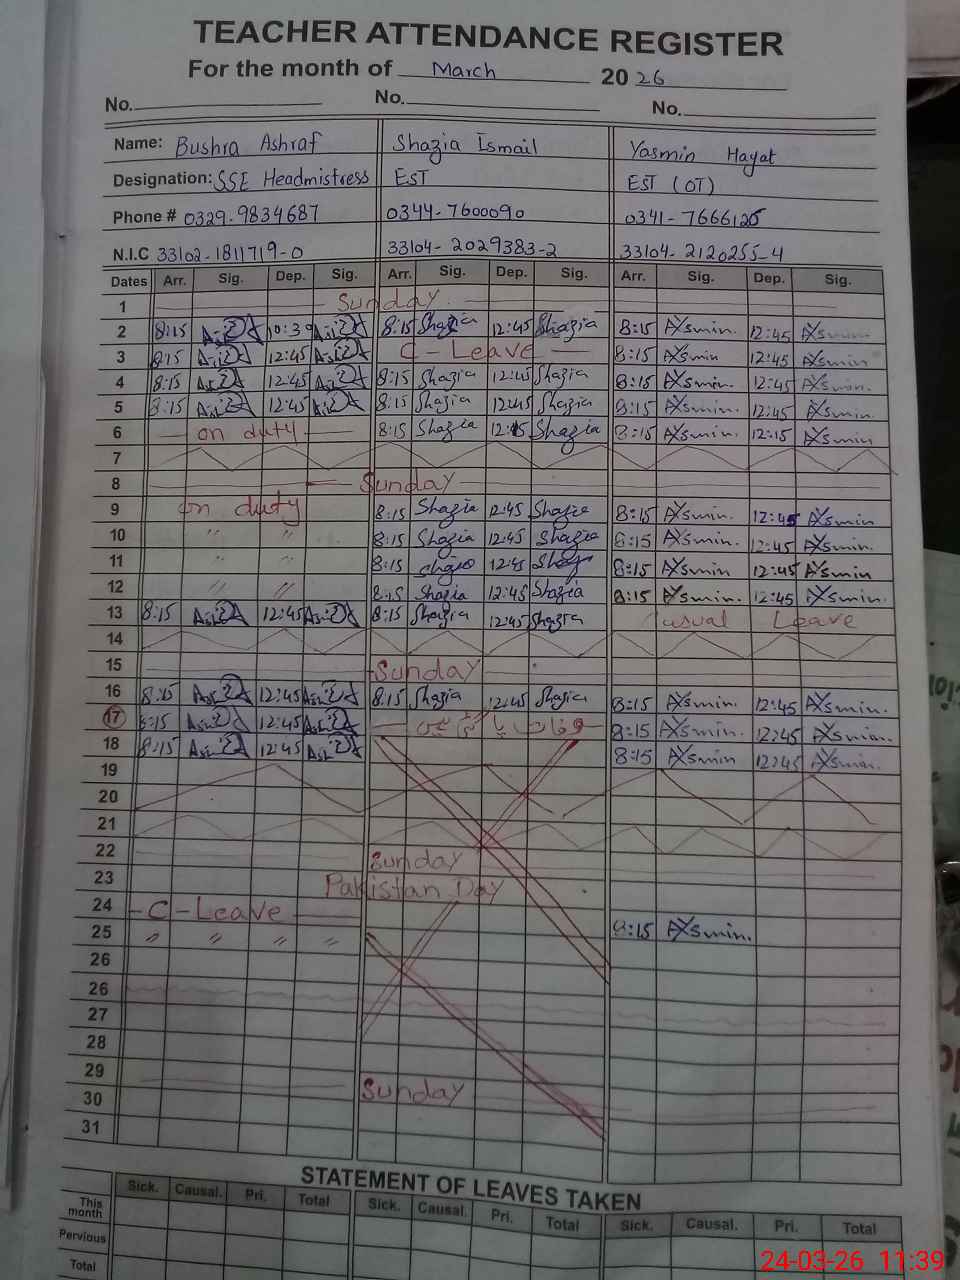 TEACHER ATTENDANCE REGISTER
For the month of March 2026
No. No. No.
Name: Bushra Ashraf Shazia Ismail Yasmin Hayat
Designation: SSE Headmistress EST EST (OT)
Phone # 0329-9834687 0344-7600090 0341-7666125
N.I.C 33102-1811719-0 33104-2029383-2 33104-2120255-4
Dates Arr. Sig. Dep. Sig. Arr. Sig. Dep. Sig. Arr. Sig. Dep. Sig.
1 Sunday
2 8:15 10:30 8:15 Shazia 12:45 Shazia 8:15 Yasmin 12:45 Yasmin
3 8:15 12:45 C-Leave 8:15 Yasmin 12:45 Yasmin
4 8:15 12:45 8:15 Shazia 12:45 Shazia 8:15 Yasmin. 12:45 Yasmin.
5 8:15 12:45 8:15 Shazia 12:45 Shazia 8:15 Yasmin. 12:45 Yasmin
6 on duty 8:15 Shazia 12:15 Shazia 8:15 Yasmin. 12:15 Yasmin
7
8 Sunday
9 on duty 8:15 Shazia 12:45 Shazia 8:15 Yasmin. 12:45 Yasmin
10 〃 〃 8:15 Shazia 12:45 Shazia 8:15 Yasmin. 12:45 Yasmin
11 〃 〃 8:15 Shazia 12:45 8:15 Yasmin 12:45 Yasmin
12 〃 〃 8:15 Shazia 12:45 Shazia 8:15 Yasmin. 12:45 Yasmin.
13 8:15 12:45 8:15 Shazia 12:45 Shazia Casual Leave
14
15 Sunday
16 8:15 12:45 8:15 Shazia 12:45 Shazia 8:15 Yasmin. 12:45 Yasmin.
17 8:15 12:45 8:15 Yasmin. 12:45 Yasmin.
18 8:15 12:45 8:15 Yasmin 12:45 Yasmin.
19
20
21
22 Sunday
23 Pakistan Day
24 C-Leave
25 〃 〃 〃 〃 8:15 Yasmin.
26
26
27
28
29 Sunday
30
31
STATEMENT OF LEAVES TAKEN
Sick. Causal. Pri. Total Sick. Causal. Pri. Total Sick. Causal. Pri. Total
This month
Pervious
Total
24-03-26 11:39